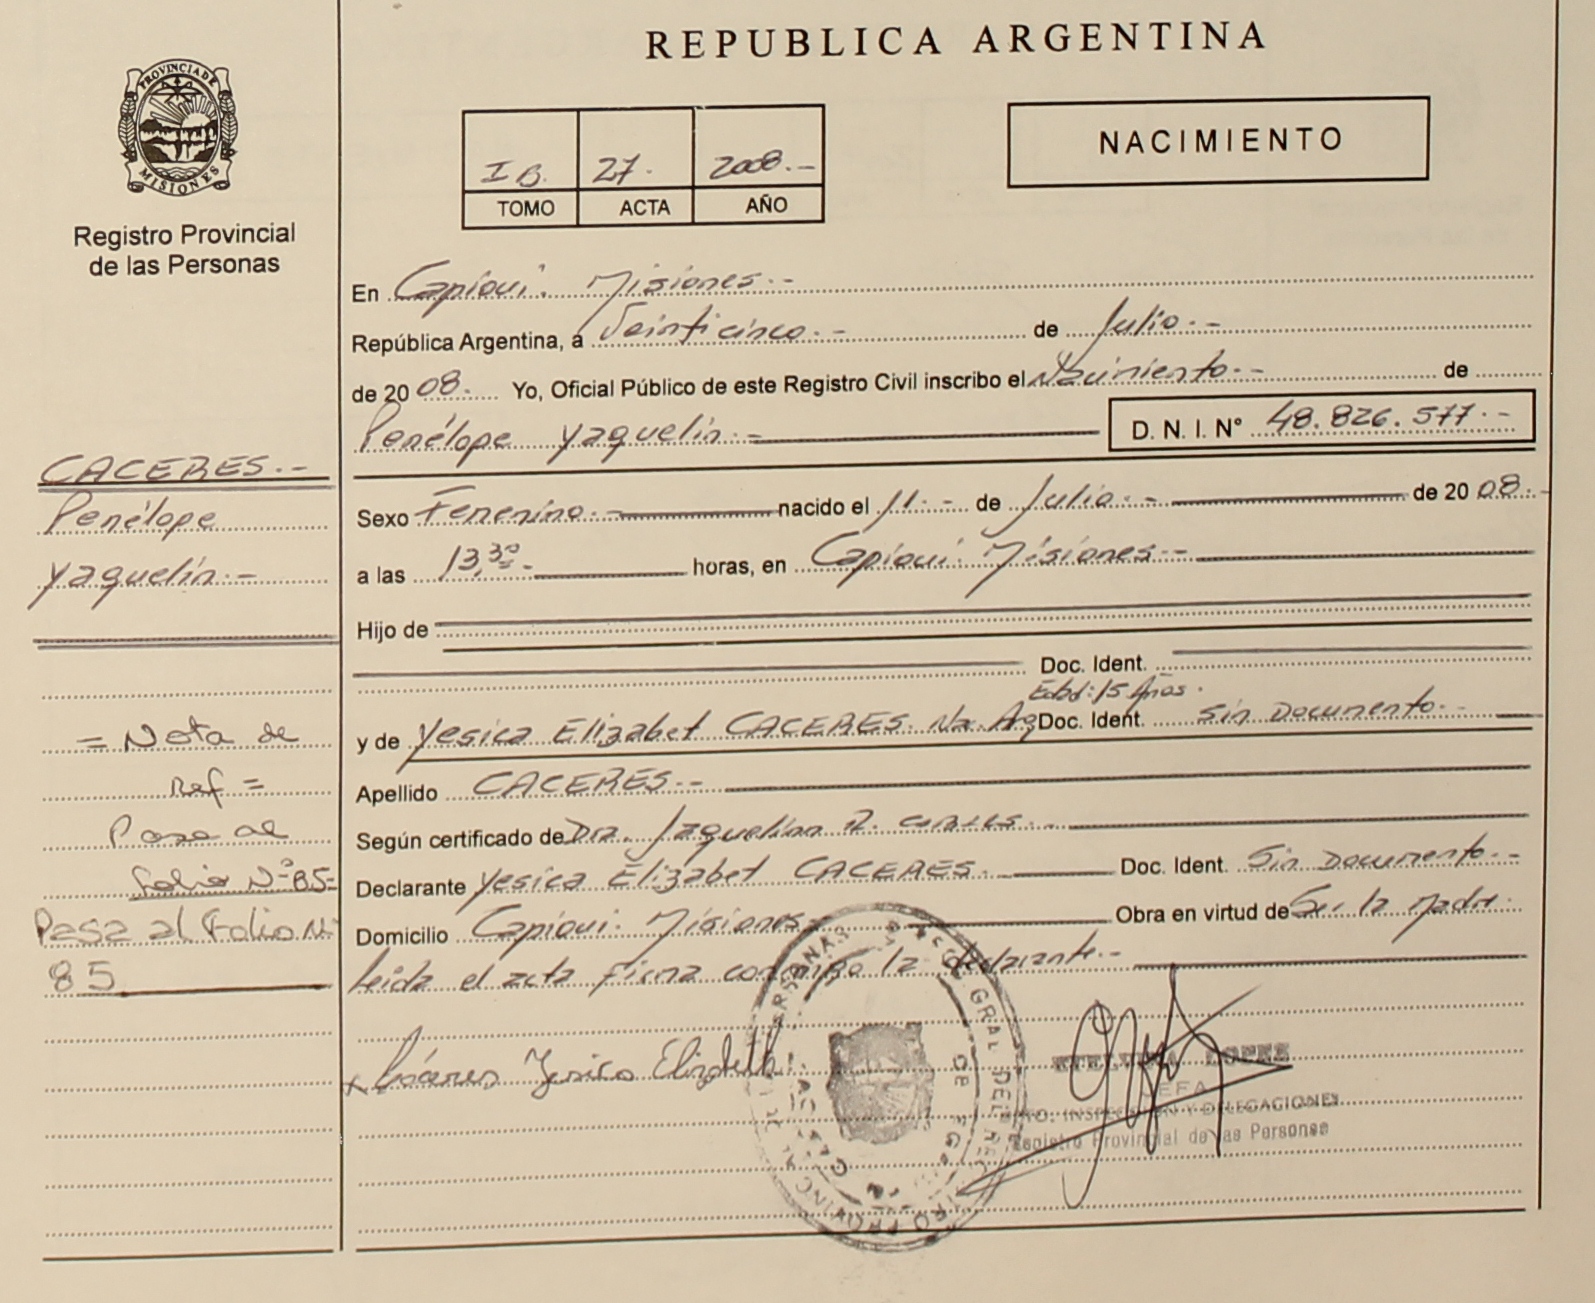 REPUBLICA ARGENTINA
PROVINCIA DE
MISIONES
Registro Provincial
de las Personas
I B. 27. 2008.-
TOMO ACTA AÑO
NACIMIENTO
En Capioui. Misiones.-
República Argentina, a Veinticinco.- de Julio.-
de 2008. Yo, Oficial Público de este Registro Civil inscribo el Nacimiento.- de
Penélope Yaquelin.- D. N. I. N° 48.826.577.-
Sexo Femenino.- nacido el 11.- de Julio.- de 2008.-
a las 13,30.- horas, en Capioui. Misiones.-
Hijo de
Doc. Ident.
Edad: 15 Años.
y de Yesica Elizabet CACERES. Na. Arg Doc. Ident. Sin Documento.-
Apellido CACERES.-
Según certificado de Dra. Jaquelina
Declarante Yesica Elizabet CACERES. Doc. Ident. Sin Documento.-
Domicilio Capioui. Misiones.- Obra en virtud de Ser la Madre.
Leida el acta firma conmigo la declarante.-
CACERES.-
Penélope
Yaquelin.-
= Nota de
Ref =
Pasa al
folio Nº 85-
Pasa al Folio Nº
85
x Cáceres Yesica Elizabeth.
LOPEZ
JEFA
DTO. INSPECCION Y DELEGACIONES
Registro Provincial de las Personas
GRAL DEL REGISTRO PROVINCIAL PERSONAS